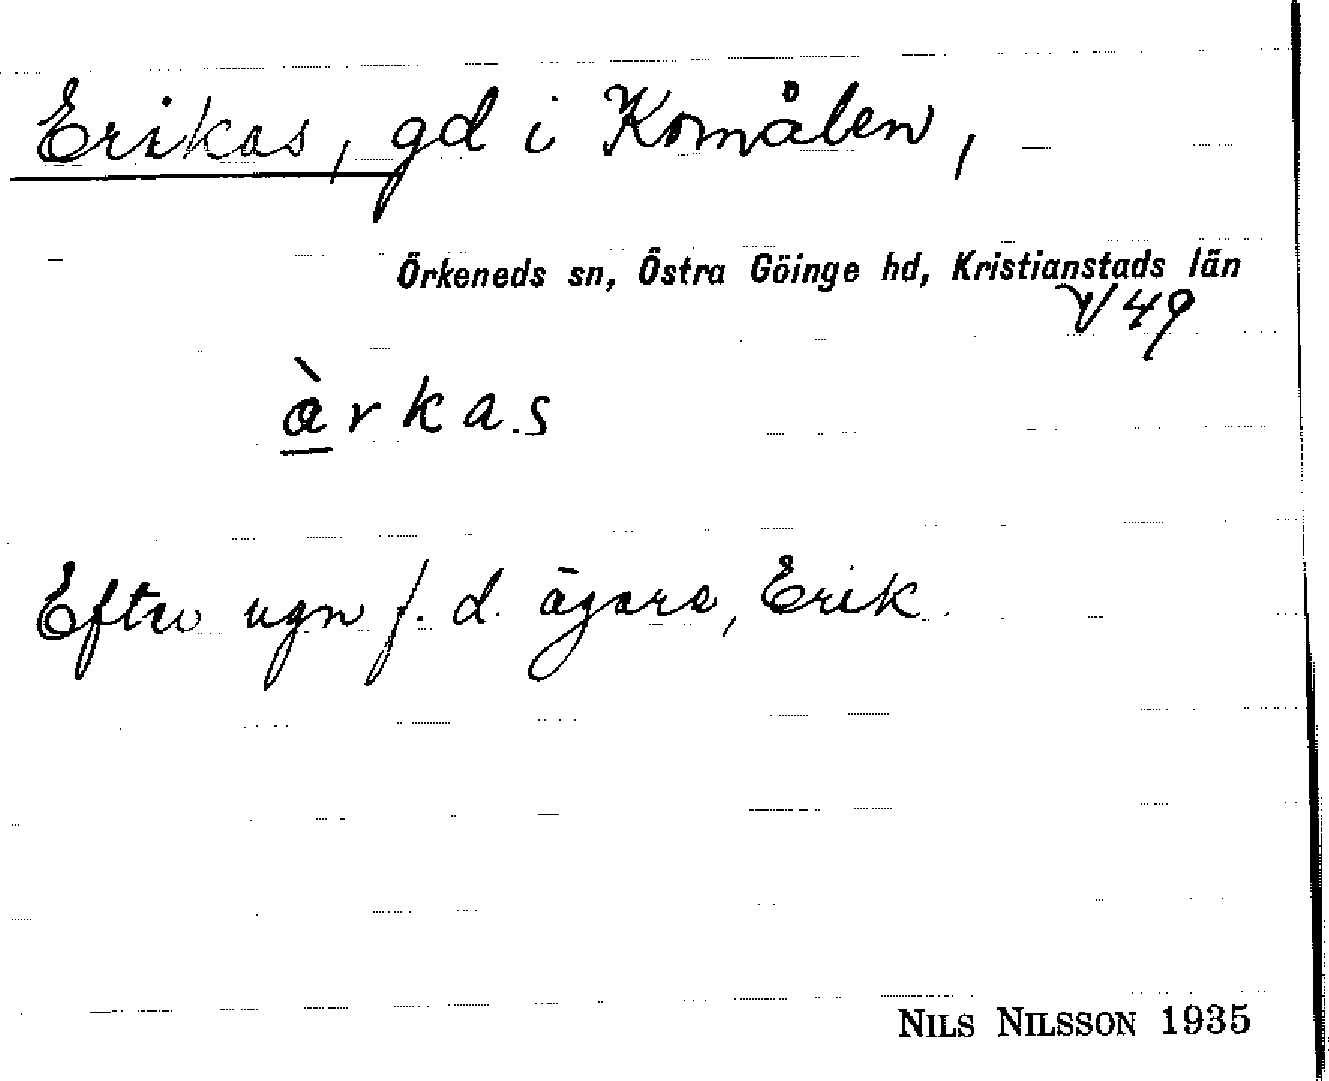 Erikas, gd i Komålen,
Örkeneds sn, Östra Göinge hd, Kristianstads län
V 49
àrkas
Efter ugn f. d. ägare, Erik.
NILS NILSSON 1935